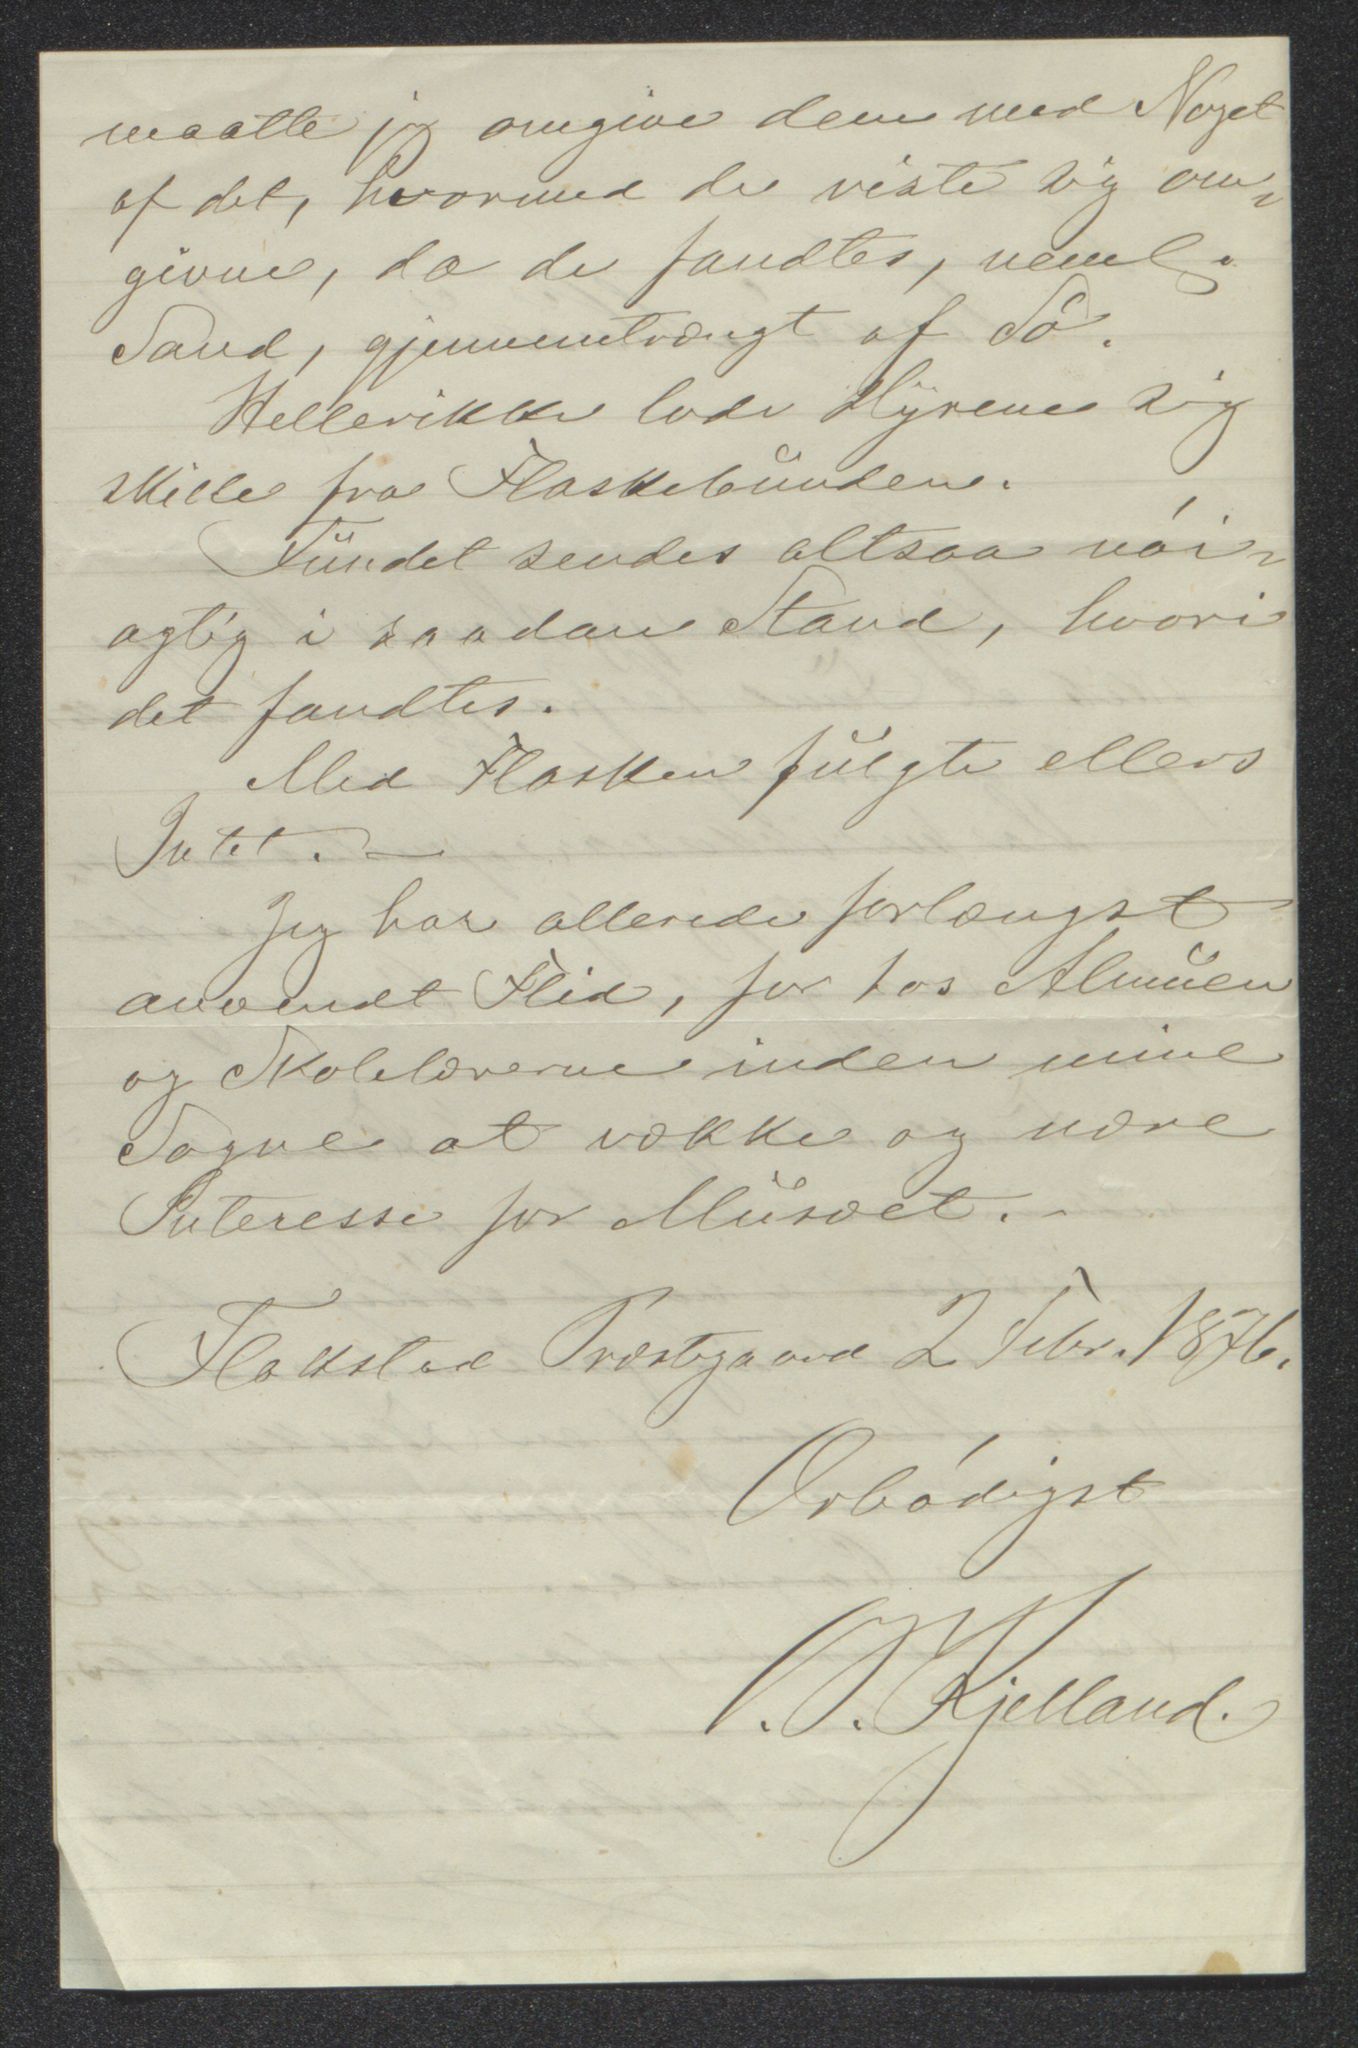 maatte jeg omgive dem med Noget
af det, hvormed de viste sig om-
givne, da de fandtes, neml.
Sand, gjennemtrængt af Sö.
Hellerikke lode Dyrene sig
skille fra Flaskebunden.
Fundet sendes altsaa nöi-
agtig i saadan Stand, hvori
det fandtes.
Med Flasken fulgte ellers
Intet. —
Jeg har allerede forlængst
anvendt Flid, for hos Almuen
og Skolelærerne inden mine
Sogne at vække og nære
Interesse for Musæet. -
Flakstad Præstegaard 2 Febr. 1876.
Ærbödigst
Kjelland.